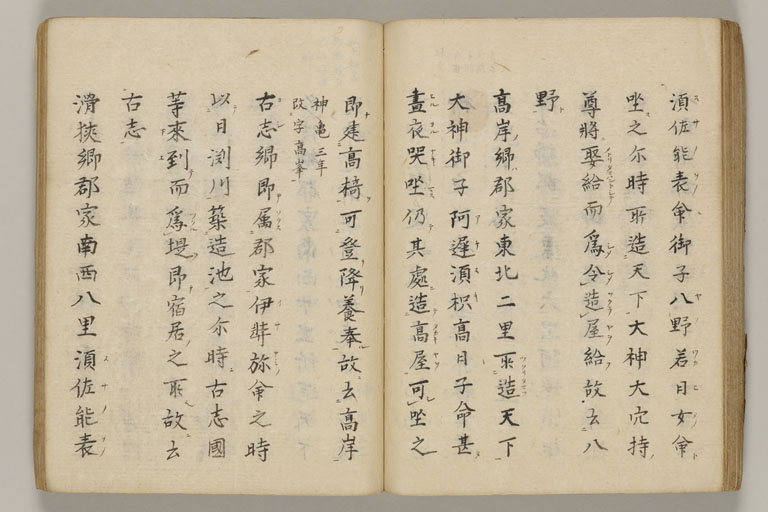 湏佐能表命御子八野若日女命
坐之尓時所造天下大神大穴持
尊將娶給而爲令造屋給故云八
野
髙岸郷郡家東北二里所造天下
大神御子阿遲湏枳髙日子命甚
晝夜哭坐仍其處造髙屋可坐之
即建髙椅可登降養奉故云髙岸
神亀三年
改字髙峯
古志郷即属郡家伊弉弥命之時
以日渕川築造池之尓時古志國
等來到而爲堤即宿居之所故云
古志
滑狹郷郡家南西八里湏佐能表